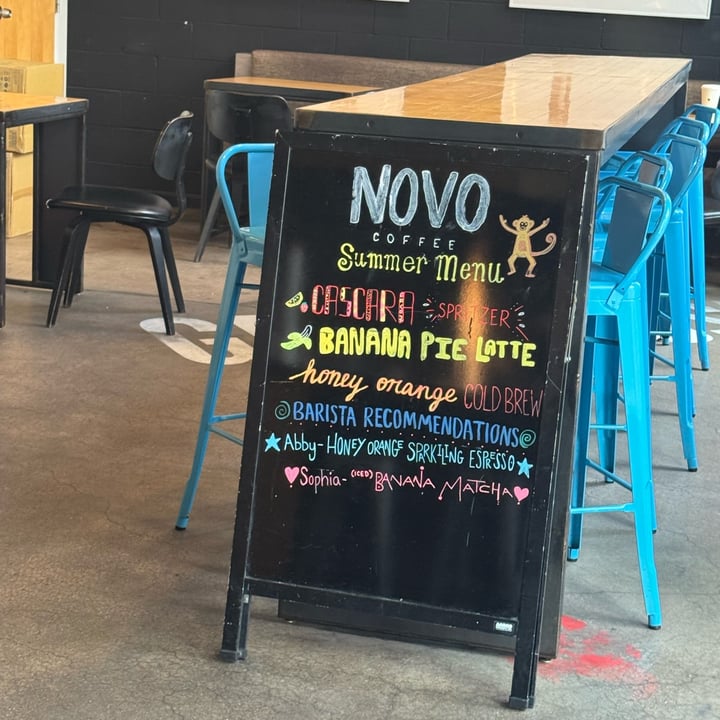 NOVO
COFFEE
Summer Menu
CASCARA SPRITZER
BANANA PIE LATTE
honey orange COLD BREW
BARISTA RECOMMENDATIONS
Abby- HONEY ORANGE SPARKLING ESPRESSO
Sophia- (ICED) BANANA MATCHA